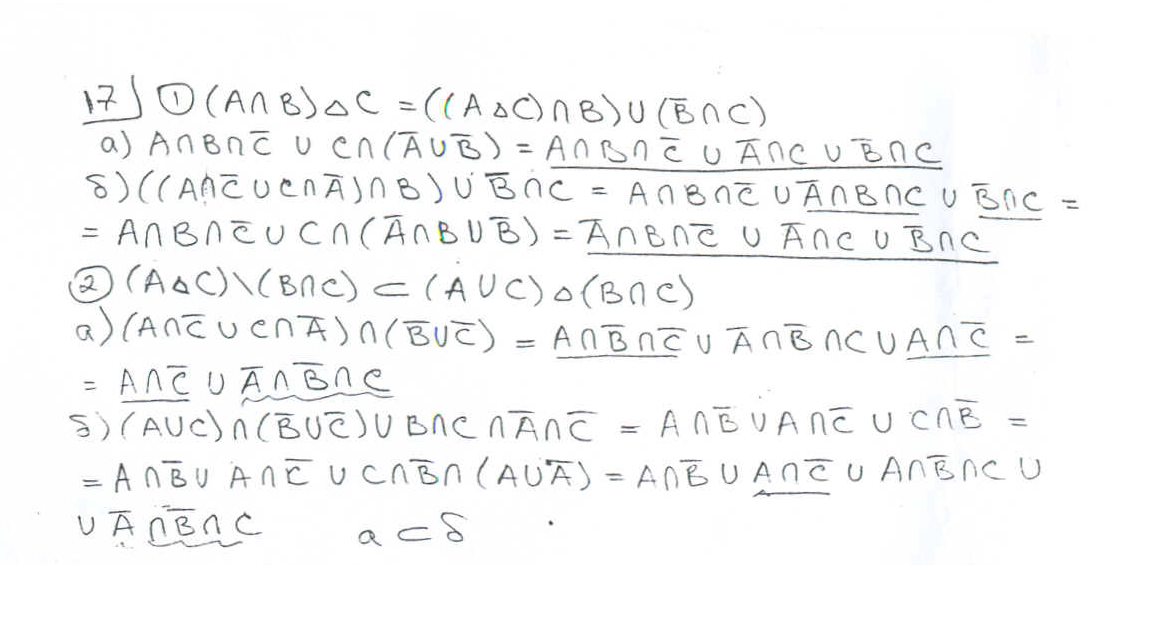 17) ① (A∩B)△C = ((A△C)∩B)∪(B̅∩C)
а) A∩B∩C̅ ∪ C∩(A̅∪B̅) = A∩B∩C̅ ∪ A̅∩C ∪ B̅∩C
б) ((A∩C̅∪C∩A̅)∩B)∪B̅∩C = A∩B∩C̅ ∪ A̅∩B∩C ∪ B̅∩C =
= A∩B∩C̅ ∪ C∩(A̅∩B∪B̅) = A̅∩B∩C̅ ∪ A̅∩C ∪ B̅∩C
② (A△C)\(B∩C) ⊂ (A∪C)△(B∩C)
а) (A∩C̅ ∪ C∩A̅)∩(B̅∪C̅) = A∩B̅∩C̅ ∪ A̅∩B̅∩C ∪ A∩C̅ =
= A∩C̅ ∪ A̅∩B̅∩C
б) (A∪C)∩(B̅∪C̅)∪B∩C∩A̅∩C̅ = A∩B̅∪A∩C̅ ∪ C∩B̅ =
= A∩B̅∪ A∩C̅ ∪ C∩B̅∩(A∪A̅) = A∩B̅ ∪ A∩C̅ ∪ A∩B̅∩C ∪
∪ A̅∩B̅∩C а ⊂ б